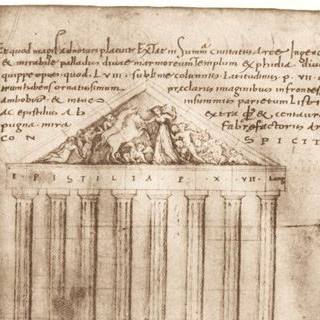 et quod magis adnotum placuit: Extat in summa civitatis arce Ingen
et mirabile palladis divae marmoreum templum
quippe opus quod. L VIII. sublime columnis Latitudinis p. VII
ornatissimum praeclaris imaginibus in fronte
ambobus et intus in summis parietum Listri
ac epistilis ab extra et centaur
pugna. mira Fabrefactoris Ar
CON SPICIT
EPISTILIA P. X. VII. Long